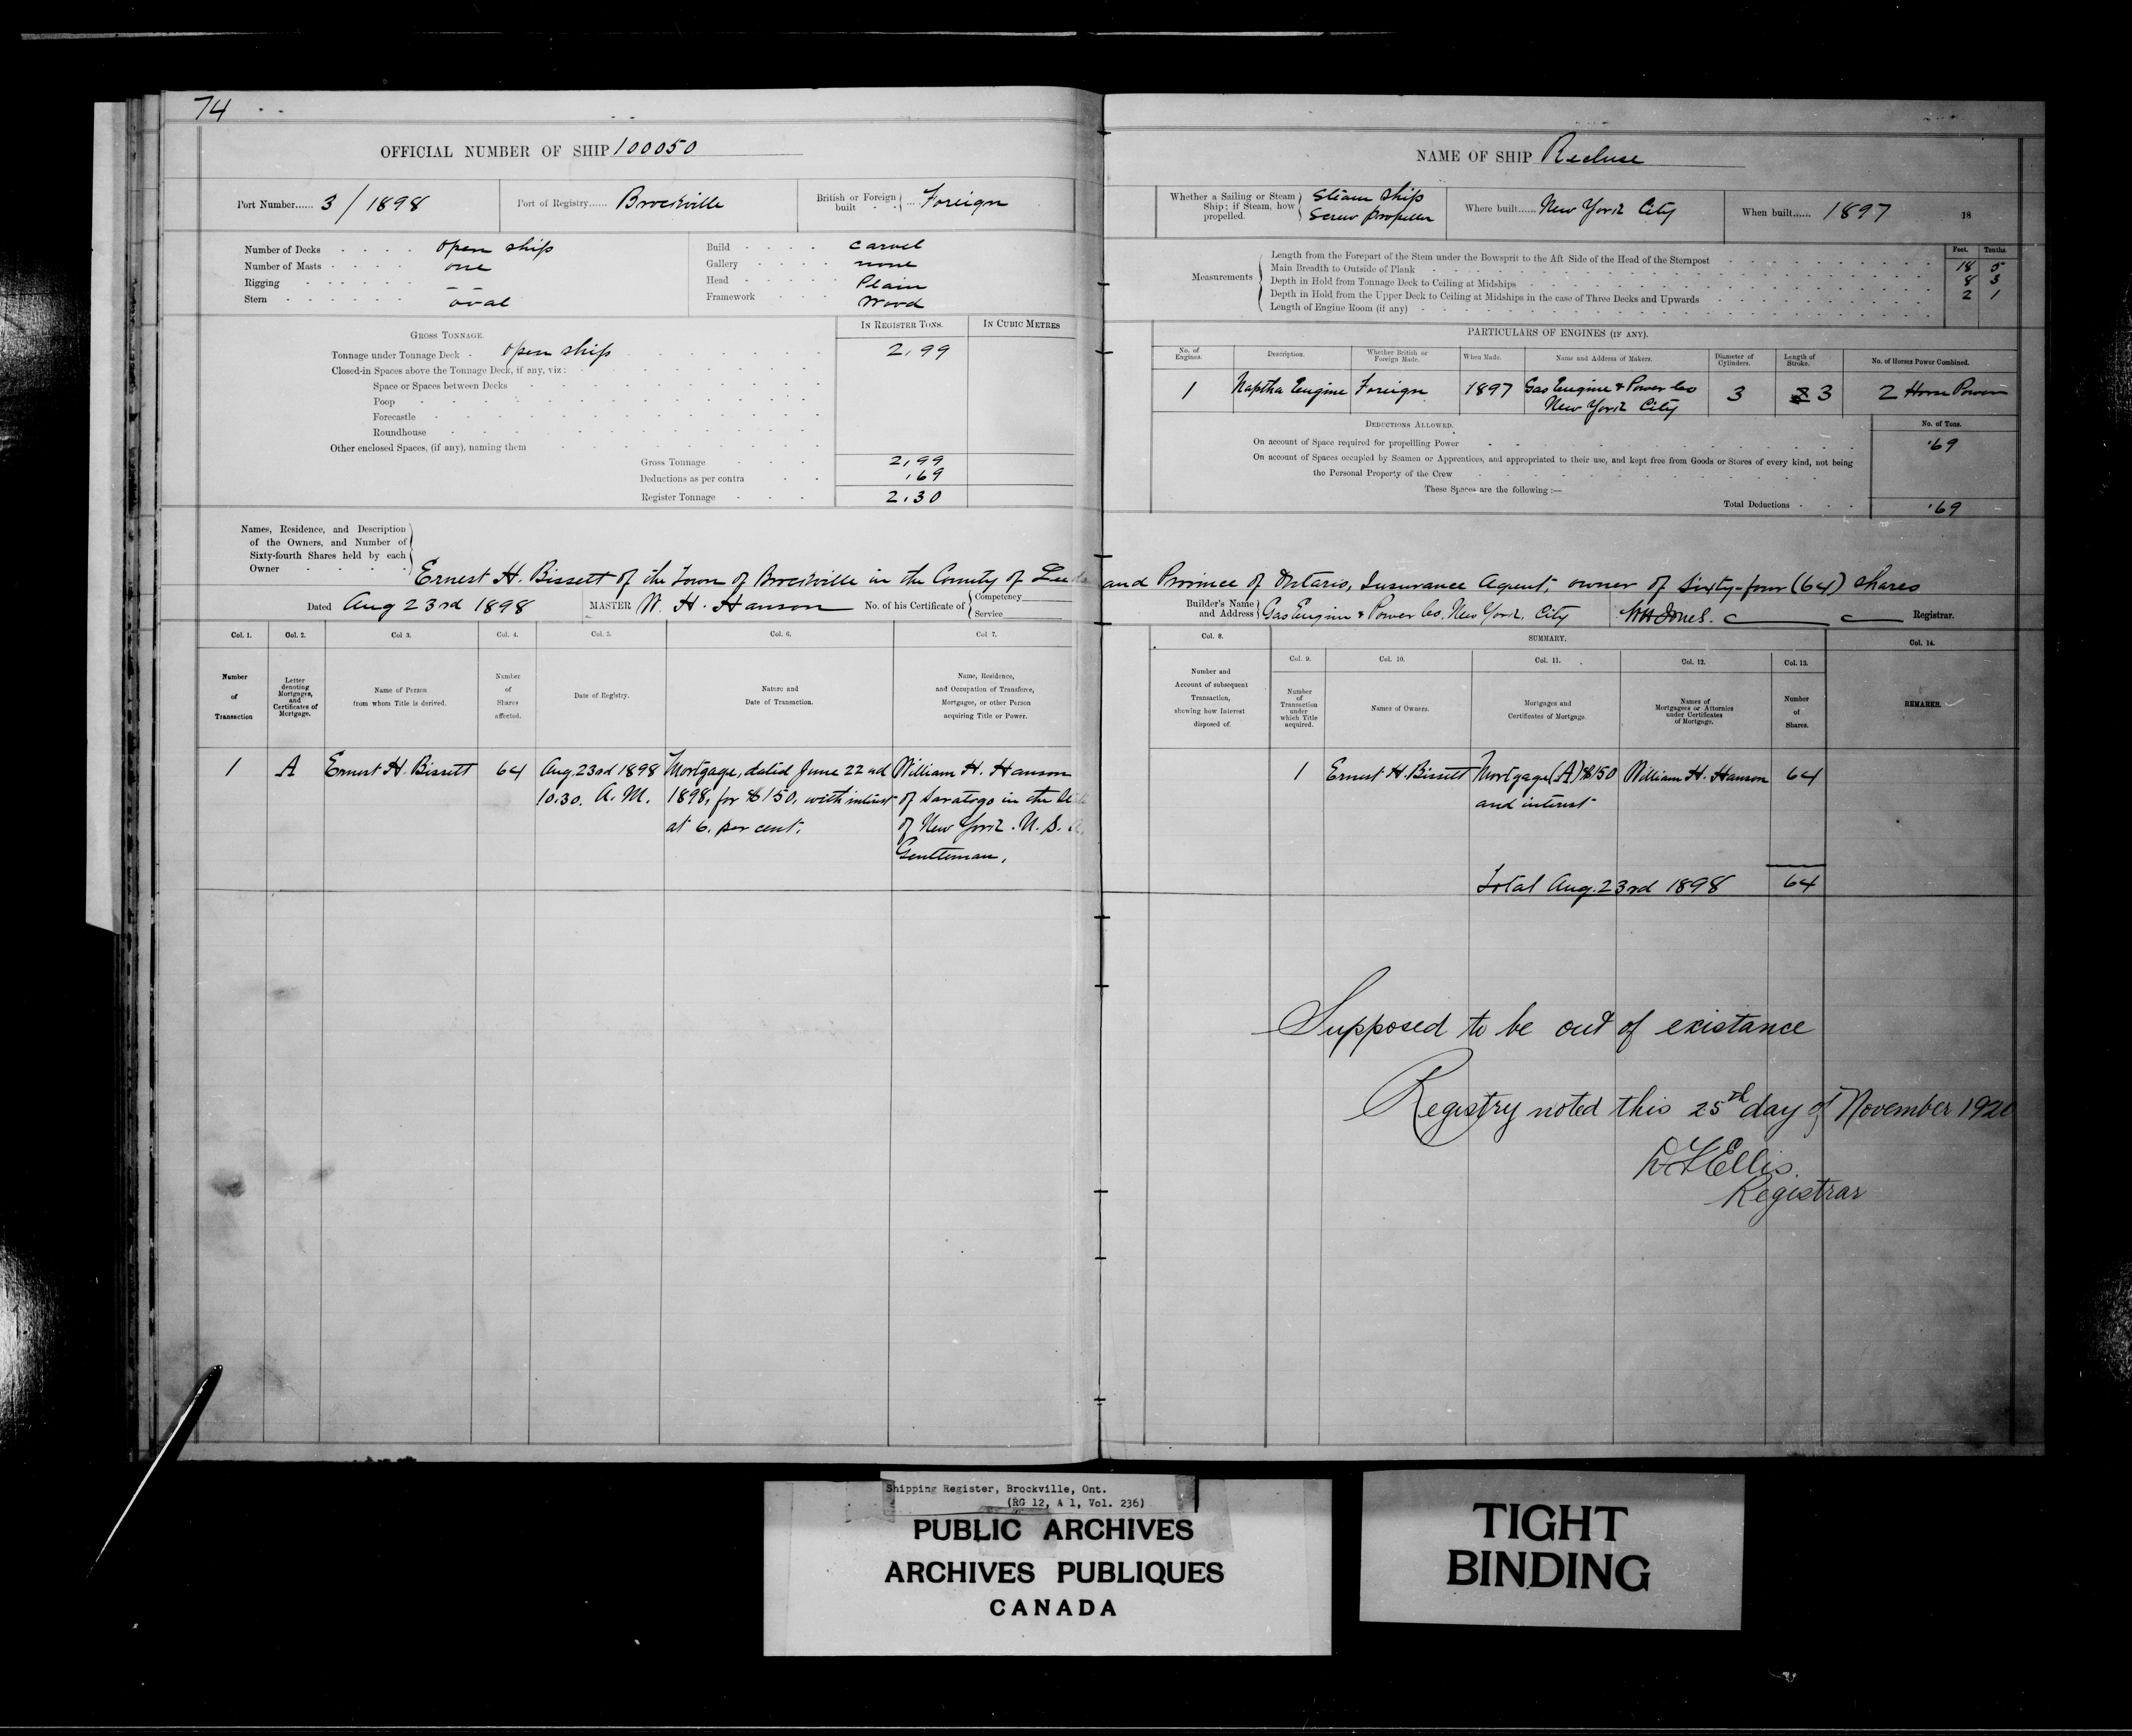 74
OFFICIAL NUMBER OF SHIP 100050
Port Number...... 3/1898
Port of Registry...... Brockville
British or Foreign built ... Foreign
Number of Decks open ship
Number of Masts one
Rigging - -
Stern oval
Build carvel
Gallery none
Head Plain
Framework Wood
GROSS TONNAGE.
IN REGISTER TONS. IN CUBIC METRES
Tonnage under Tonnage Deck - open ship 2.99
Closed-in Spaces above the Tonnage Deck, if any, viz:
Space or Spaces between Decks
Poop
Forecastle
Roundhouse
Other enclosed Spaces, (if any), naming them
Gross Tonnage 2.99
Deductions as per contra .69
Register Tonnage 2.30
Names, Residence, and Description
of the Owners, and Number of
Sixty-fourth Shares held by each
Owner
Ernest H. Bissett of the Town of Brockville in the County of Leeds
Dated Aug 23rd 1898 MASTER W. H. Hanson No. of his Certificate of Competency Service
Col. 1. Col. 2. Col 3. Col. 4. Col. 5. Col. 6. Col 7.
Number of Transaction
Letter denoting Mortgages, and Certificates of Mortgage.
Name of Person from whom Title is derived.
Number of Shares affected.
Date of Registry.
Nature and Date of Transaction.
Name, Residence, and Occupation of Transferee, Mortgagee, or other Person acquiring Title or Power.
1 A Ernest H. Bissett 64 Aug. 23rd 1898 Mortgage, dated June 22nd William H. Hanson
10.30. A.M. 1898, for $150, with interest of Saratoga in the
at 6. per cent. of New York. U. S. A.
Gentleman,
NAME OF SHIP Recluse
Whether a Sailing or Steam Ship; if Steam, how propelled. Steam Ship Screw propeller
Where built...... New York City
When built...... 1897 18
Measurements
Feet. Tenths.
Length from the Forepart of the Stem under the Bowsprit to the Aft Side of the Head of the Sternpost 18 5
Main Breadth to Outside of Plank 8 3
Depth in Hold from Tonnage Deck to Ceiling at Midships 2 1
Depth in Hold from the Upper Deck to Ceiling at Midships in the case of Three Decks and Upwards
Length of Engine Room (if any)
PARTICULARS OF ENGINES (IF ANY).
No. of Engines. Description. Whether British or Foreign Made. When Made. Name and Address of Makers. Diameter of Cylinders. Length of Stroke. No. of Horses Power Combined.
1 Naptha Engine Foreign 1897 Gas Engine & Power Co 3 3 2 Horse Power
New York City
DEDUCTIONS ALLOWED. No. of Tons.
On account of Space required for propellling Power .69
On account of Spaces occupied by Seamen or Apprentices, and appropriated to their use, and kept free from Goods or Stores of every kind, not being
the Personal Property of the Crew
These Spaces are the following :—
Total Deductions .69
and Province of Ontario, Insurance Agent, owner of Sixty-four (64) shares
Builder's Name and Address Gas Engine & Power Co. New York. City WH Jones. Registrar.
Col. 8. SUMMARY. Col. 14.
Col. 9. Col. 10. Col. 11. Col. 12. Col. 13.
Number and Account of subsequent Transaction, showing how Interest disposed of.
Number of Transaction under which Title acquired.
Names of Owners.
Mortgages and Certificates of Mortgage.
Names of Mortgagees or Attornies under Certificates of Mortgage.
Number of Shares.
REMARKS.
1 Ernest H. Bissett Mortgage (A) $150 William H. Hanson 64
and interest
Total Aug. 23rd 1898 64
Supposed to be out of existance
Registry noted this 25th day of November 1920
Ellis.
Registrar
Shipping Register, Brockville, Ont.
(RG 12, A 1, Vol. 236)
PUBLIC ARCHIVES
ARCHIVES PUBLIQUES
CANADA
TIGHT
BINDING